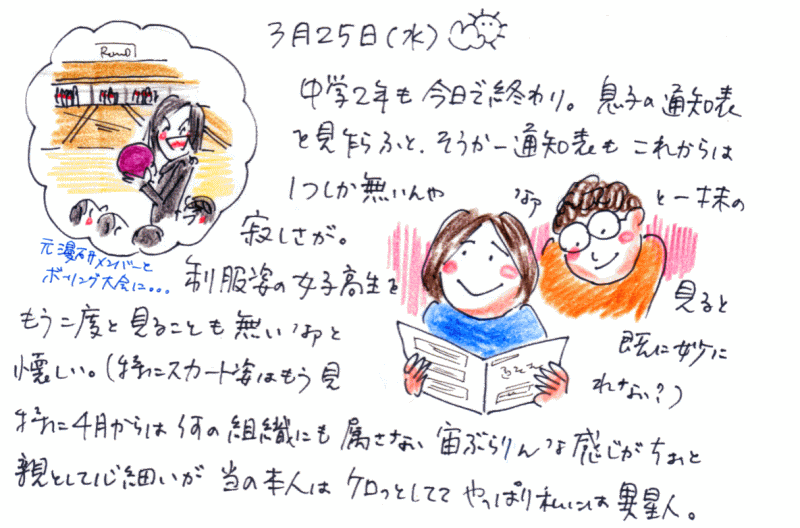 3月25日(水)
中学2年も今日で終わり。息子の通知表
を見ながらふと、そうかー通知表もこれからは
1つしか無いんやなぁと一抹の
寂しさが。
制服姿の女子高生を見ると
もう二度と見ることも無いなぁと既に妙に
懐しい。(特にスカート姿はもう見れない?)
特に4月からは何の組織にも属さない宙ぶらりんな感じがちょっと
親として心細いが当の本人はケロっとしててやっぱり私には異星人。
Round
元漫研メンバーと
ボーリング大会に...